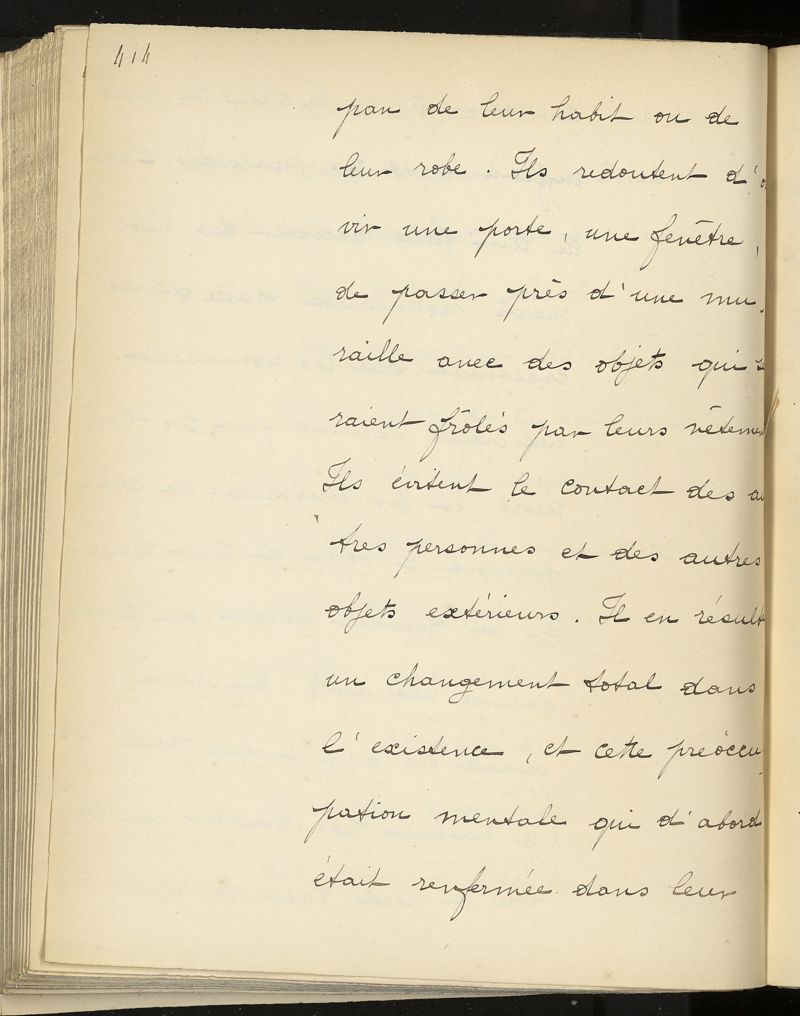 414
pan de leur habit ou de
leur robe. Ils redoutent d'ou
vrir une porte, une fenêtre,
de passer près d'une mu-
raille avec des objets qui se
raient frôlés par leurs vêtemen
Ils évitent le contact des au
tres personnes et des autres
objets extérieurs. Il en résulte
un changement total dans
l'existence, et cette préoccu-
pation mentale qui d'abord
était renfermée dans leur